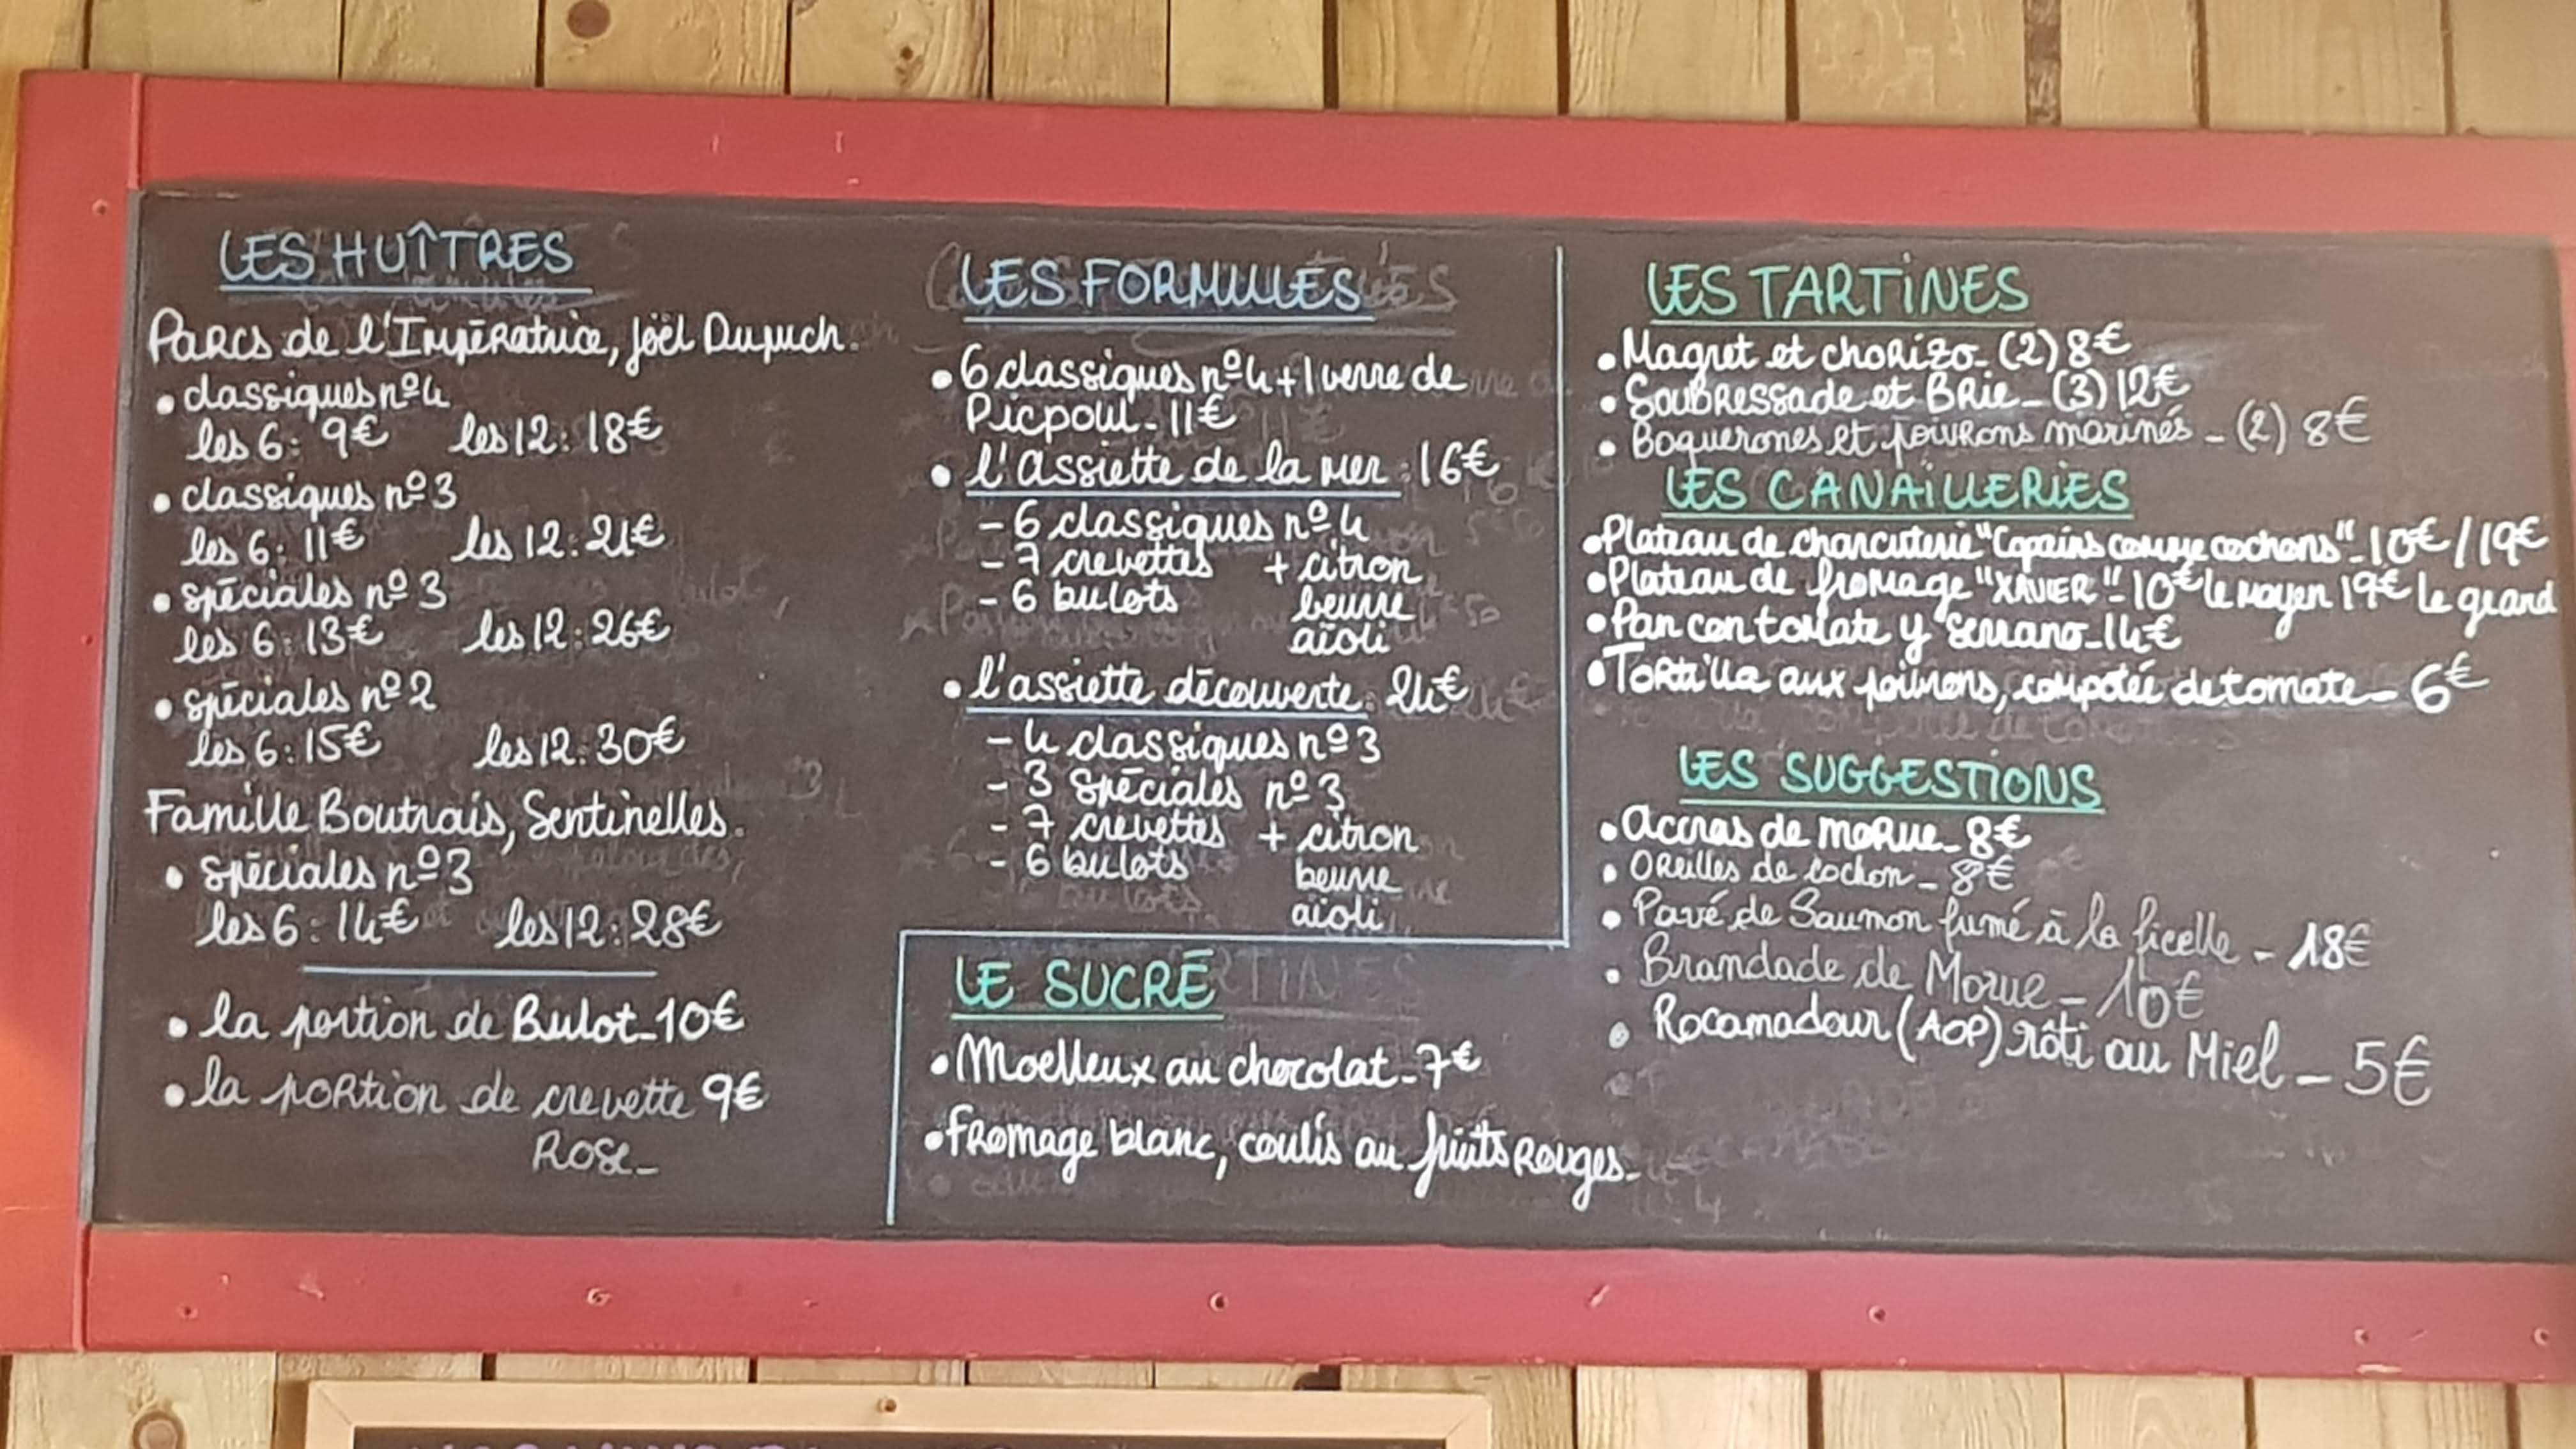 LES HUÎTRES
Parcs de l'Impératrice, Joël Dupuch.
• classiques nº4
les 6: 9€ les 12: 18€
• classiques nº3
les 6: 11€ les 12: 21€
• spéciales nº3
les 6: 13€ les 12: 26€
• spéciales nº2
les 6: 15€ les 12: 30€
Famille Boutrais, Sentinelles.
• spéciales nº3
les 6: 14€ les 12: 28€
• la portion de Bulot_10€
• la portion de crevette 9€
Rose_
LES FORMULES
• 6 classiques nº4 + 1 verre de
Picpoul_11€
• l'assiette de la mer: 16€
- 6 classiques nº4
- 7 crevettes + citron
- 6 bulots beurre
aïoli
• l'assiette découverte: 24€
- 4 classiques nº3
- 3 spéciales nº3
- 7 crevettes + citron
- 6 bulots beurre
aïoli
LE SUCRÉ
• Moelleux au chocolat_7€
• Fromage blanc, coulis au fruits Rouges_
LES TARTINES
• Magret et chorizo_(2) 8€
• Soubressade et Brie_(3) 12€
• Boquerones et poivrons marinés_(2) 8€
LES CANAILLERIES
• Plateau de charcuterie "Copains comme cochons"_10€/19€
• Plateau de fromage "XAVIER"_10€ le moyen 19€ le grand
• Pan con tomate y serrano_14€
• Tortilla aux poivrons, compotée de tomate_6€
LES SUGGESTIONS
• Accras de morue_8€
• Oreilles de cochon_8€
• Pavé de Saumon fumé à la ficelle_18€
• Brandade de Morue_10€
• Rocamadour (AOP) rôti au Miel_5€